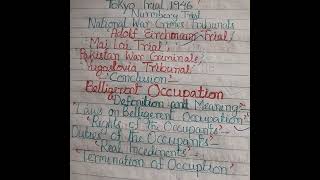 Tokyo Trial 1946
Nuremberg Trial
National War Crimes Tribunals
Adolf Eirchmann Trial
Mai Lai Trial
Pakistan War Criminals
Yugoslovia Tribunal
Conclusion
Belligerent Occupation
Definition and Meaning:-
Laws on Belligerent Occupation
Rights of the Occupants:-
Duties of the Occupants:-
Real Incidents
Termination of Occuption